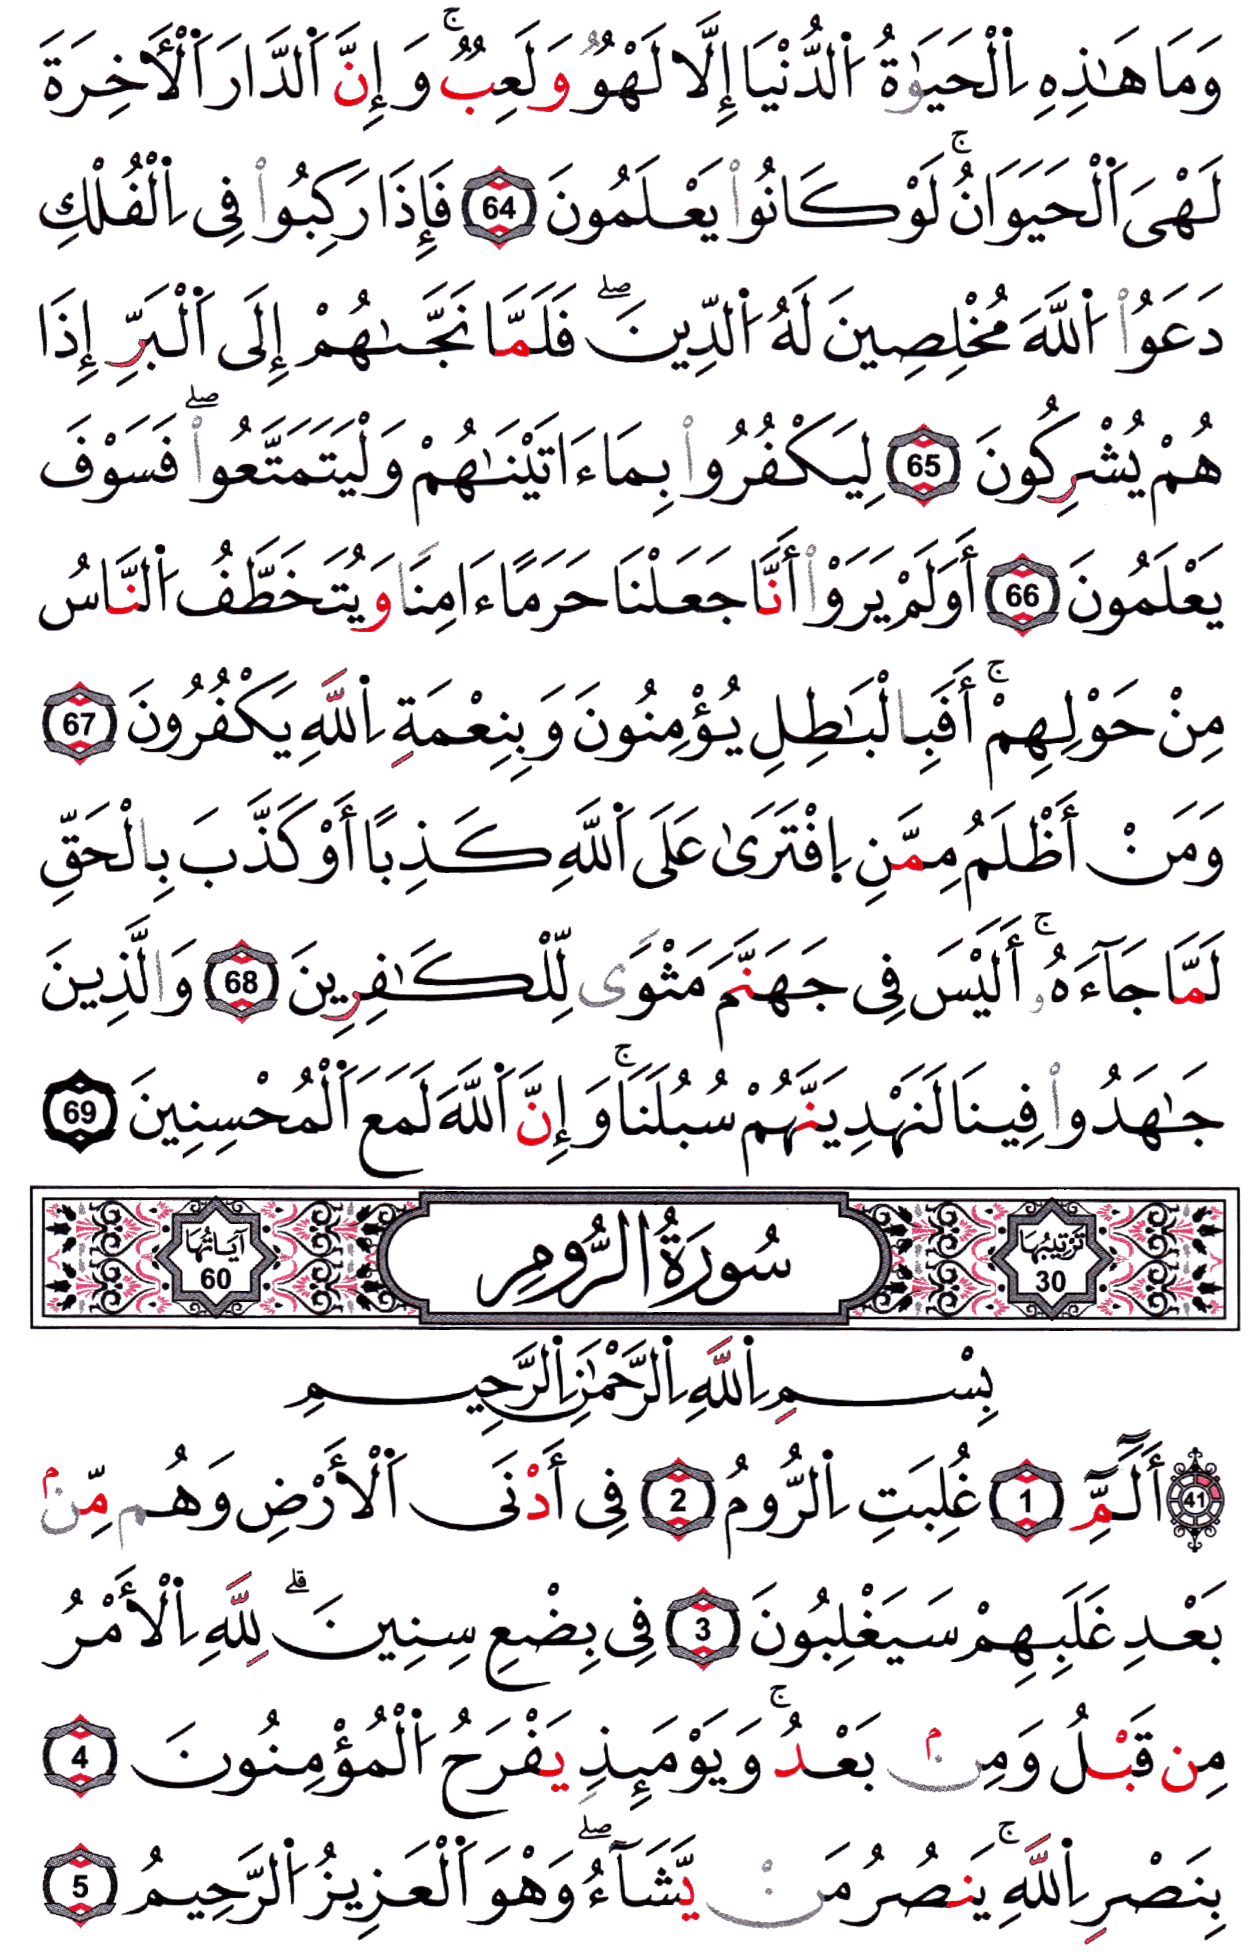 وَمَا هَٰذِهِ اِ۬لْحَيَوٰةُ اُ۬لدُّنْيَا إِلَّا لَهْوٌ وَلَعِبٌۖ وَإِنَّ اَ۬لدَّارَ اَ۬لْأَخِرَةَ
لَهْيَ اَ۬لْحَيَوَانُۚ لَوْ كَانُواْ يَعْلَمُونَ 64 فَإِذَا رَكِبُواْ فِى اِ۬لْفُلْكِ
دَعَوُاْ اُ۬للَّهَ مُخْلِصِينَ لَهُ اُ۬لدِّينَۖ فَلَمَّا نَجَّىٰهُمْ إِلَى اَ۬لْبَرِّ إِذَا
هُمْ يُشْرِكُونَ 65 لِيَكْفُرُواْ بِمَا ءَاتَيْنَٰهُمْ وَلْيَتَمَتَّعُواْۖ فَسَوْفَ
يَعْلَمُونَ 66 أَوَلَمْ يَرَوْاْ أَنَّا جَعَلْنَا حَرَمًا ءَامِنًا وَيُتَخَطَّفُ اُ۬لنَّاسُ
مِنْ حَوْلِهِمْۚ أَفَبِالْبَٰطِلِ يُؤْمِنُونَ وَبِنِعْمَةِ اِ۬للَّهِ يَكْفُرُونَ 67
وَمَنْ أَظْلَمُ مِمَّنِ اِ۪فْتَرَىٰ عَلَى اَ۬للَّهِ كَذِبًا أَوْ كَذَّبَ بِالْحَقِّ
لَمَّا جَآءَهُۥۚ أَلَيْسَ فِى جَهَنَّمَ مَثْوًى لِّلْكَٰفِرِينَ 68 وَالَّذِينَ
جَٰهَدُواْ فِينَا لَنَهْدِيَنَّهُمْ سُبُلَنَاۚ وَإِنَّ اَ۬للَّهَ لَمَعَ اَ۬لْمُحْسِنِينَ 69
تَرْتِيبُهَا 30 سُورَةُ الرُّومِ آيَاتُهَا 60
بِسْمِ اِ۬للَّهِ اِ۬لرَّحْمَٰنِ اِ۬لرَّحِيمِ
41 أَلَٓمِّٓ 1 غُلِبَتِ اِ۬لرُّومُ 2 فِى أَدْنَى اَ۬لْأَرْضِ وَهُم مِّنۢ
بَعْدِ غَلَبِهِمْ سَيَغْلِبُونَ 3 فِى بِضْعِ سِنِينَۗ لِلَّهِ اِ۬لْأَمْرُ
مِن قَبْلُ وَمِنۢ بَعْدُۚ وَيَوْمَئِذٍ يَفْرَحُ اُ۬لْمُؤْمِنُونَ 4
بِنَصْرِ اِ۬للَّهِۚ يَنصُرُ مَنْ يَّشَآءُۖ وَهْوَ اَ۬لْعَزِيزُ اُ۬لرَّحِيمُ 5